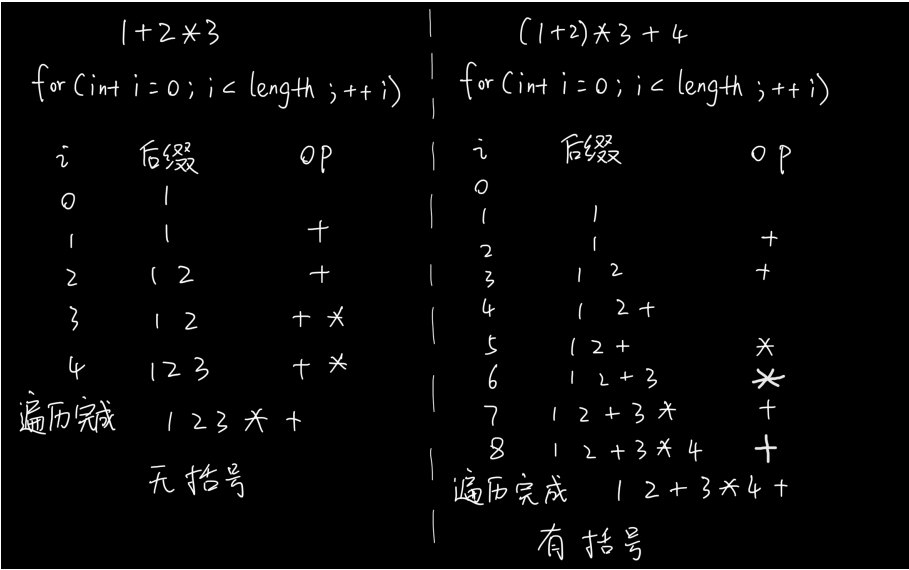 1+2*3
for(int i=0; i< length ;++i)
i 后缀 op
0 1
1 1 +
2 1 2 +
3 1 2 + *
4 1 2 3 + *
遍历完成 1 2 3 * +
无括号
(1+2)*3+4
for(int i=0; i< length ;++i)
i 后缀 op
0
1 1
2 1 +
3 1 2 +
4 1 2 +
5 1 2 + *
6 1 2 + 3 *
7 1 2 + 3 * +
8 1 2 + 3 * 4 +
遍历完成 1 2 + 3 * 4 +
有括号